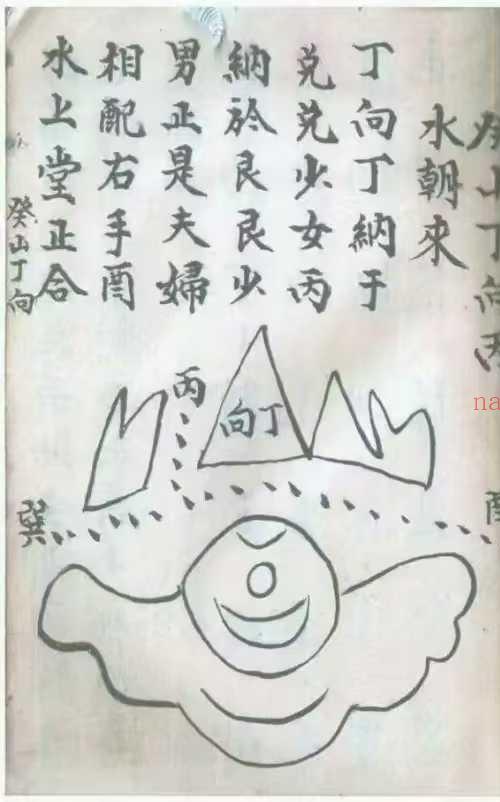 癸山丁向丙
水朝來
丁向丁納于
兑兑少女丙
納於艮艮少
男正是夫婦
相配右手酉
水上堂正合
癸山丁向
丙
丁向
巽
酉
na